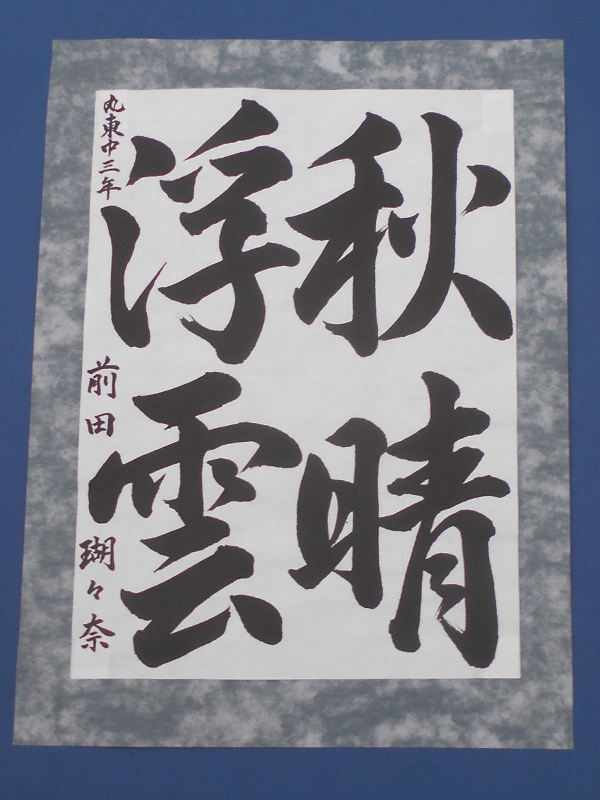 秋晴
浮雲
丸東中三年
前田瑚々奈